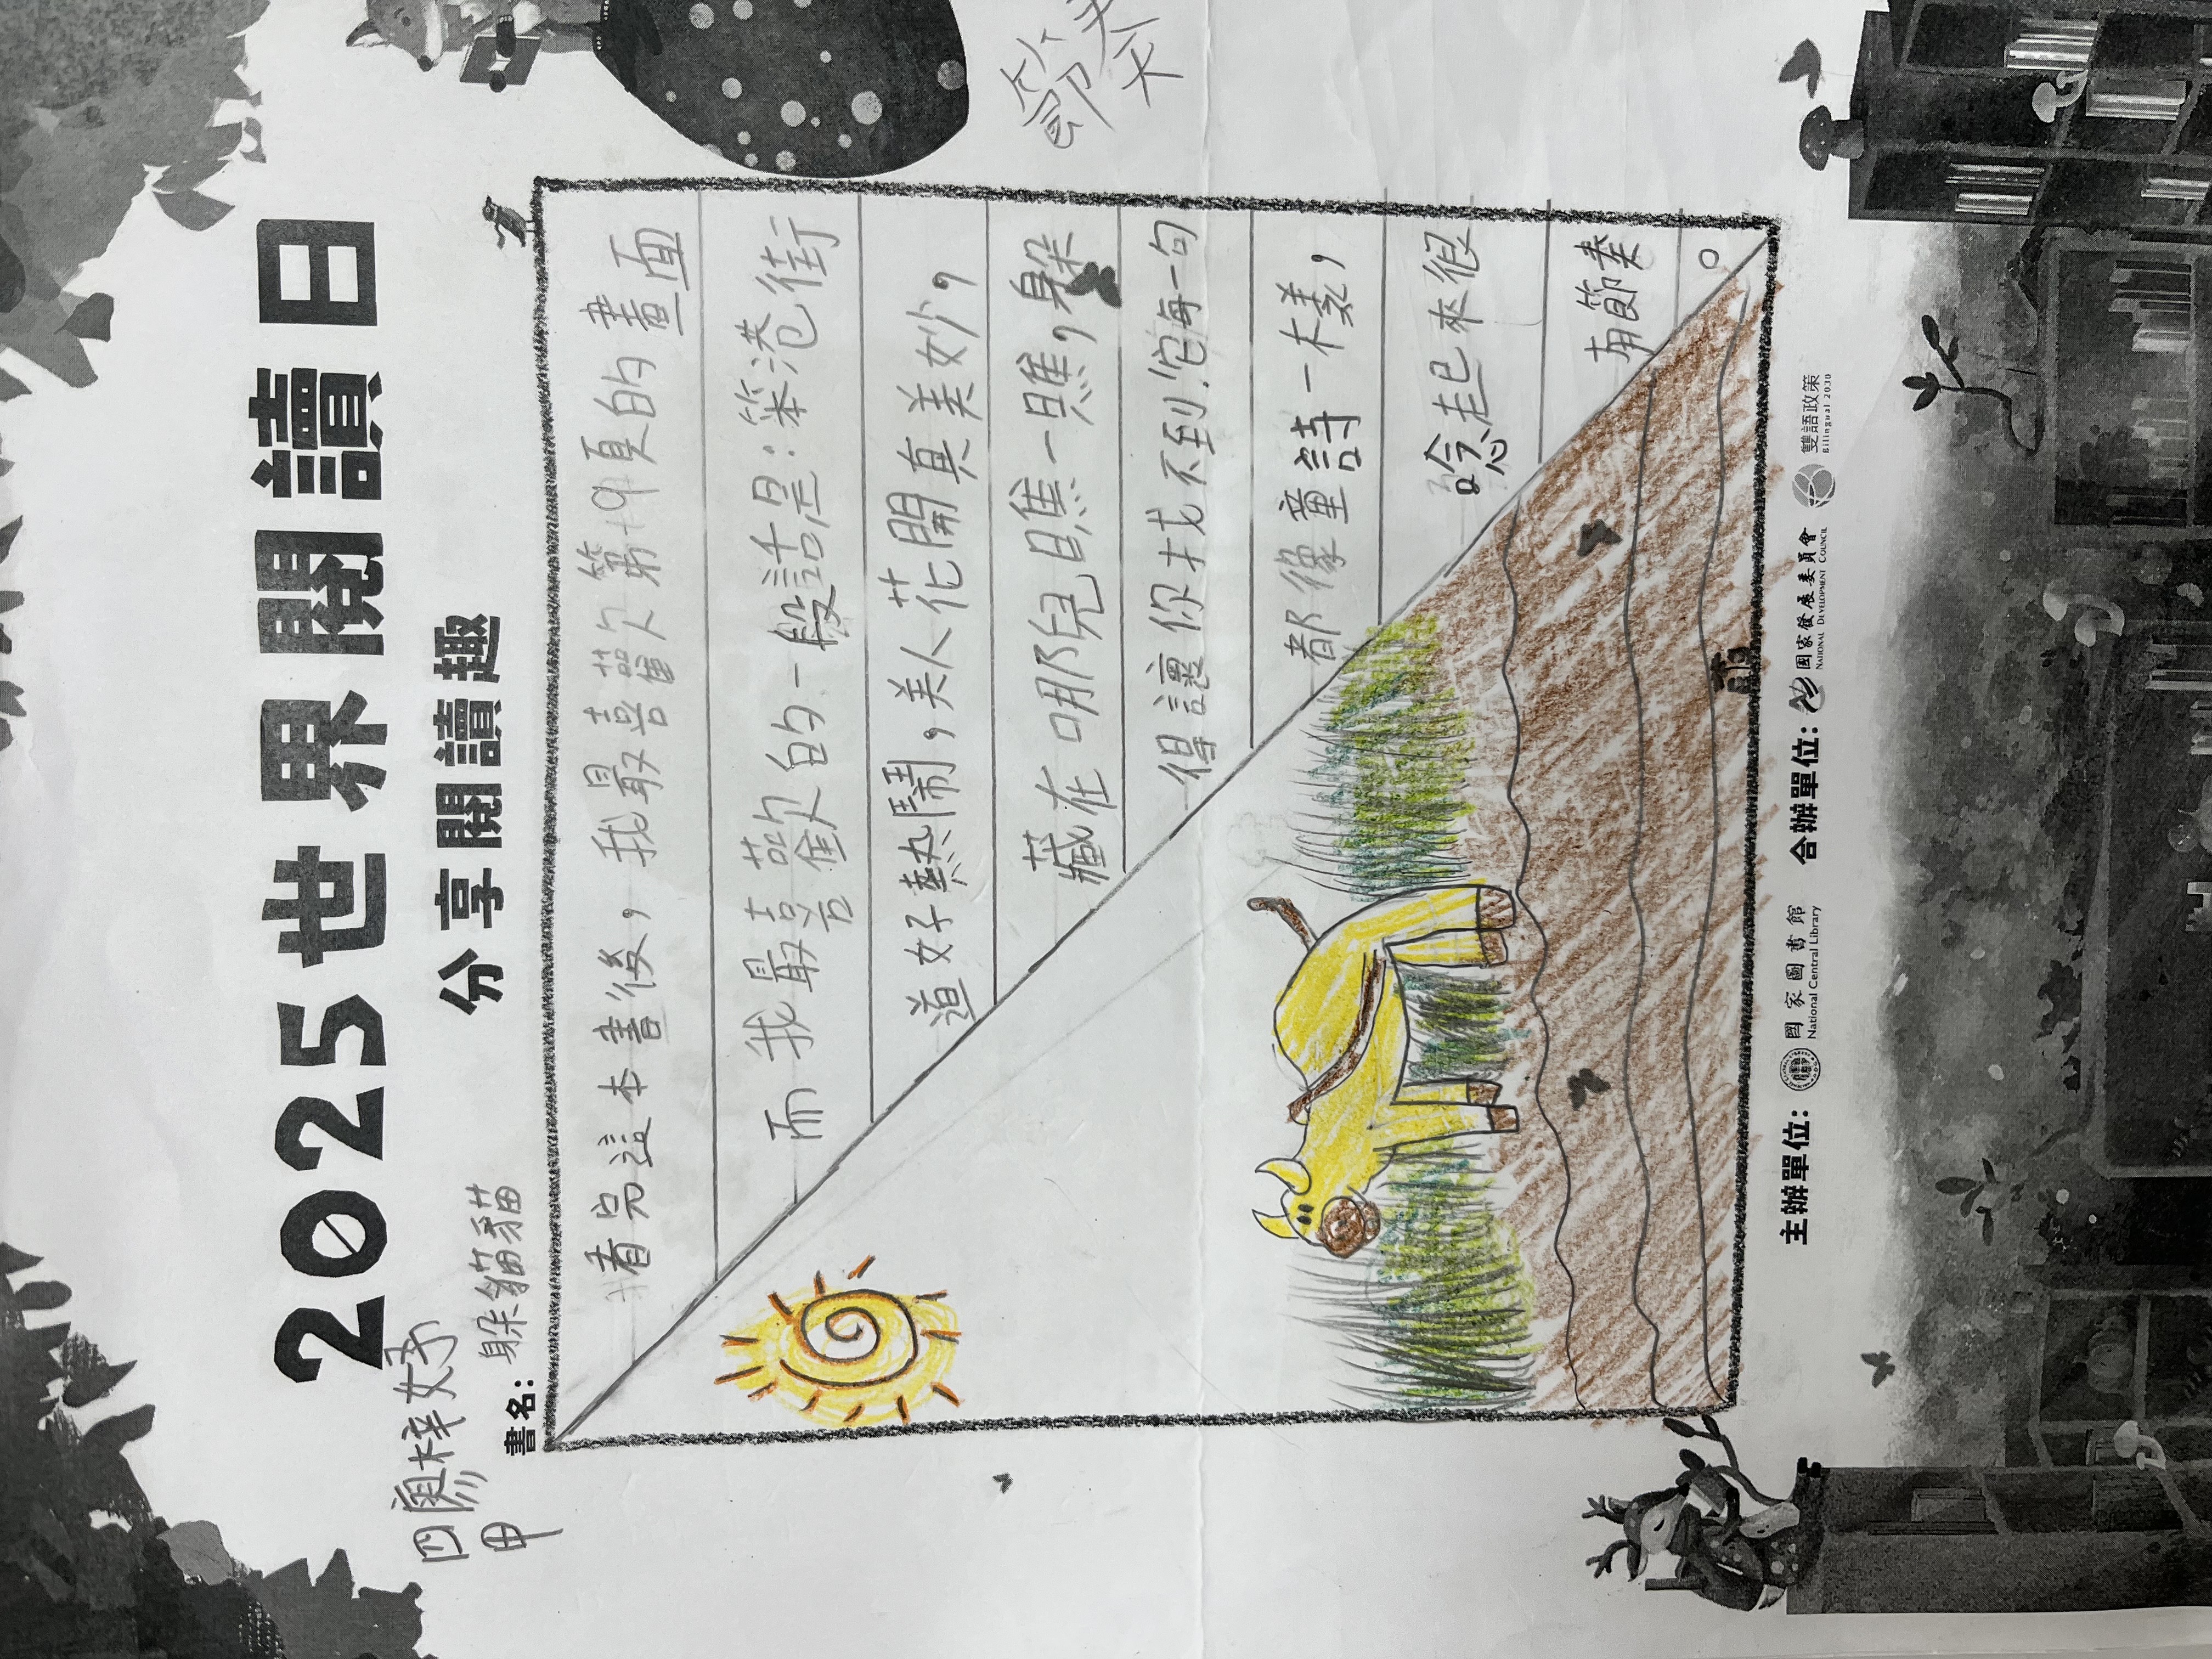 2025世界閱讀日
分享閱讀趣
四甲
廖梓妤
書名：躲貓貓
看完這本書後，我最喜歡第19頁的畫面
而我最喜歡的一段話是：笨港街
道好熱鬧，美人花開真美妙，
藏在哪兒瞧一瞧，躲
得讓你找不到！它每一句
都像童詩一樣，
唸起來很
有節奏
。
節奏
主辦單位：國家圖書館 National Central Library 合辦單位：國家發展委員會 NATIONAL DEVELOPMENT COUNCIL 雙語政策 Bilingual 2030